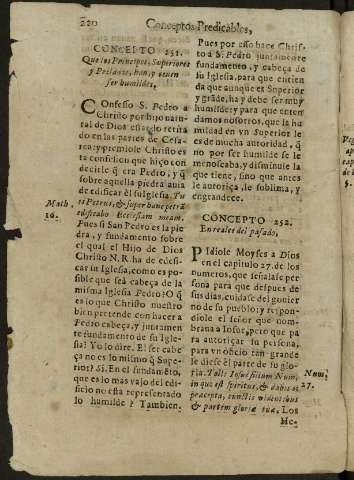 220 Conceptos Predicables,
CONCEPTO 251.
Que los Principes, Superiores
y Prelados, han, y tienen
ser humildes.
COnfesso S. Pedro a
Christo por hijo natu
ral de Dios estãdo retira
do en las partes de Cesa
rea; y premiole Christo es
ta confession que hiço con
decirle q̃ era Pedro, y q̃
sobre aquella piedra auia
de edificar el su Iglesia. Tu
es Petrus, & super hanc petrã
Math. edificabo Ecclesiam meam.
16. Pues si San Pedro es la pie
dra, y fundamento sobre
el qual el Hijo de Dios
Christo N.R. ha de edifi-
car su Iglesia, como es pos
sible que será cabeça de la
misma Iglesia Pedro? O q̃
es lo que Christo nuestro
bien pretende con hacer a
Pedro cabeça, y juntamen
te fundamento de su Igle-
sia? Yo lo dire. El ser cabe
ça no es lo mismo q̃ Supe-
rior? Si. En el fundamẽto,
que es lo mas vajo del edi-
ficio no esta representado
lo humilde? Tambien.
Pues por esso hace Chris-
to á S. Pedro juntamente
fundamento, y cabeça de
su Iglesia, para que entien
da que aunque es Superior
y grãde, ha y debe ser muy
humilde; y para que enten
damos nosotros, que la hu
mildad en vn Superior le
es de mucha autoridad, q̃
no por ser humilde se le
menoscaba, y disminuie la
que tiene, sino que antes
le autoriça, le sublima, y
engrandece.
CONCEPTO 252.
En realce del pasado,
PIdiole Moyses a Dios
en el capitulo 27. de los
numeros, que señalase per-
sona para que despues de
sus dias, cuidase del gouier
no de su pueblo; y respon-
diole el señor que nom-
brana a Iosue, pero que pa
ra autoriçar su persona,
para vn oficio tan grande
le diese él parte de su glo-
ria. Tolle Iosue filium Num, Num.
in quo est spiritus, & dabis ei 27.
præcepta, cunctis videntibus
& partem gloriæ tuæ. Los
He-